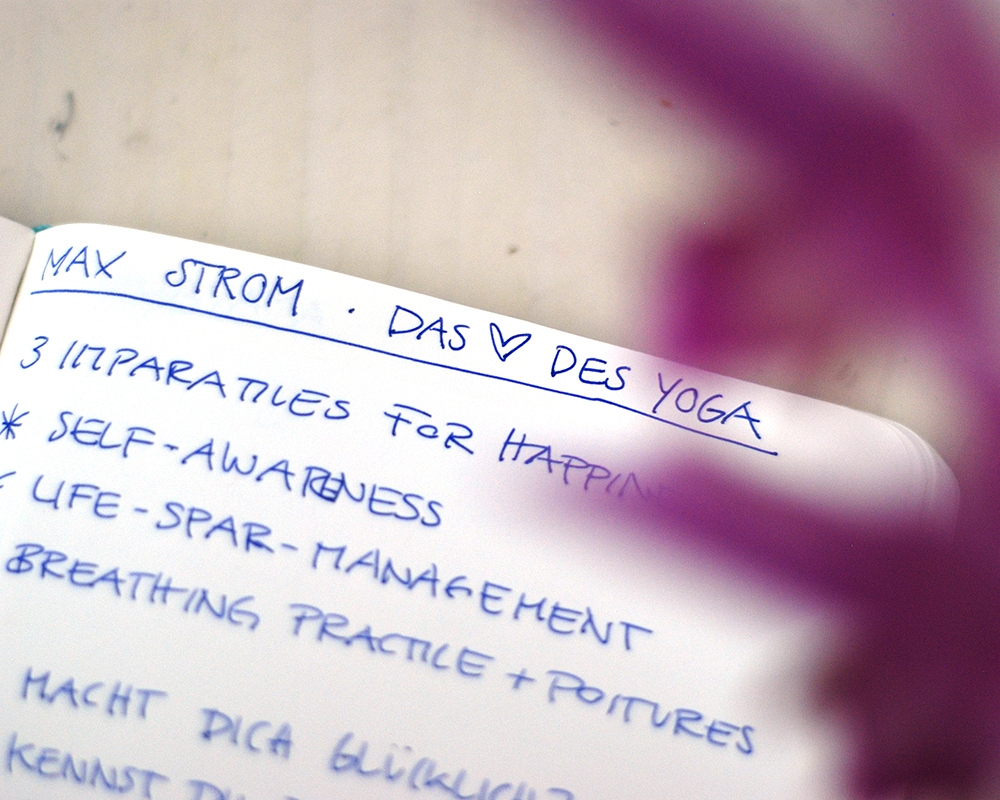 MAX STROM · DAS ♡ DES YOGA
3 IMPARATIVES FOR HAPPIN
* SELF-AWARENESS
LIFE-SPAR-MANAGEMENT
BREATHING PRACTICE + POSTURES
MACHT DICH GLÜCKLICH?
KENNST DU